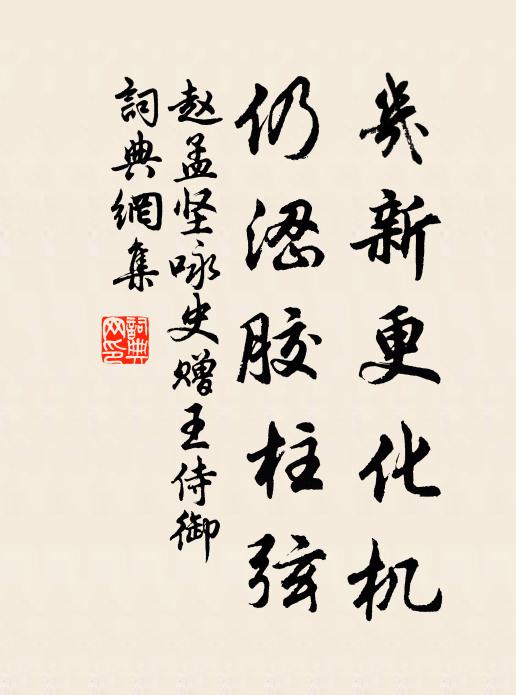 幾新更化机
仍涩胶柱弦
赵孟坚咏史赠王侍御
詞典網集
詞典网印